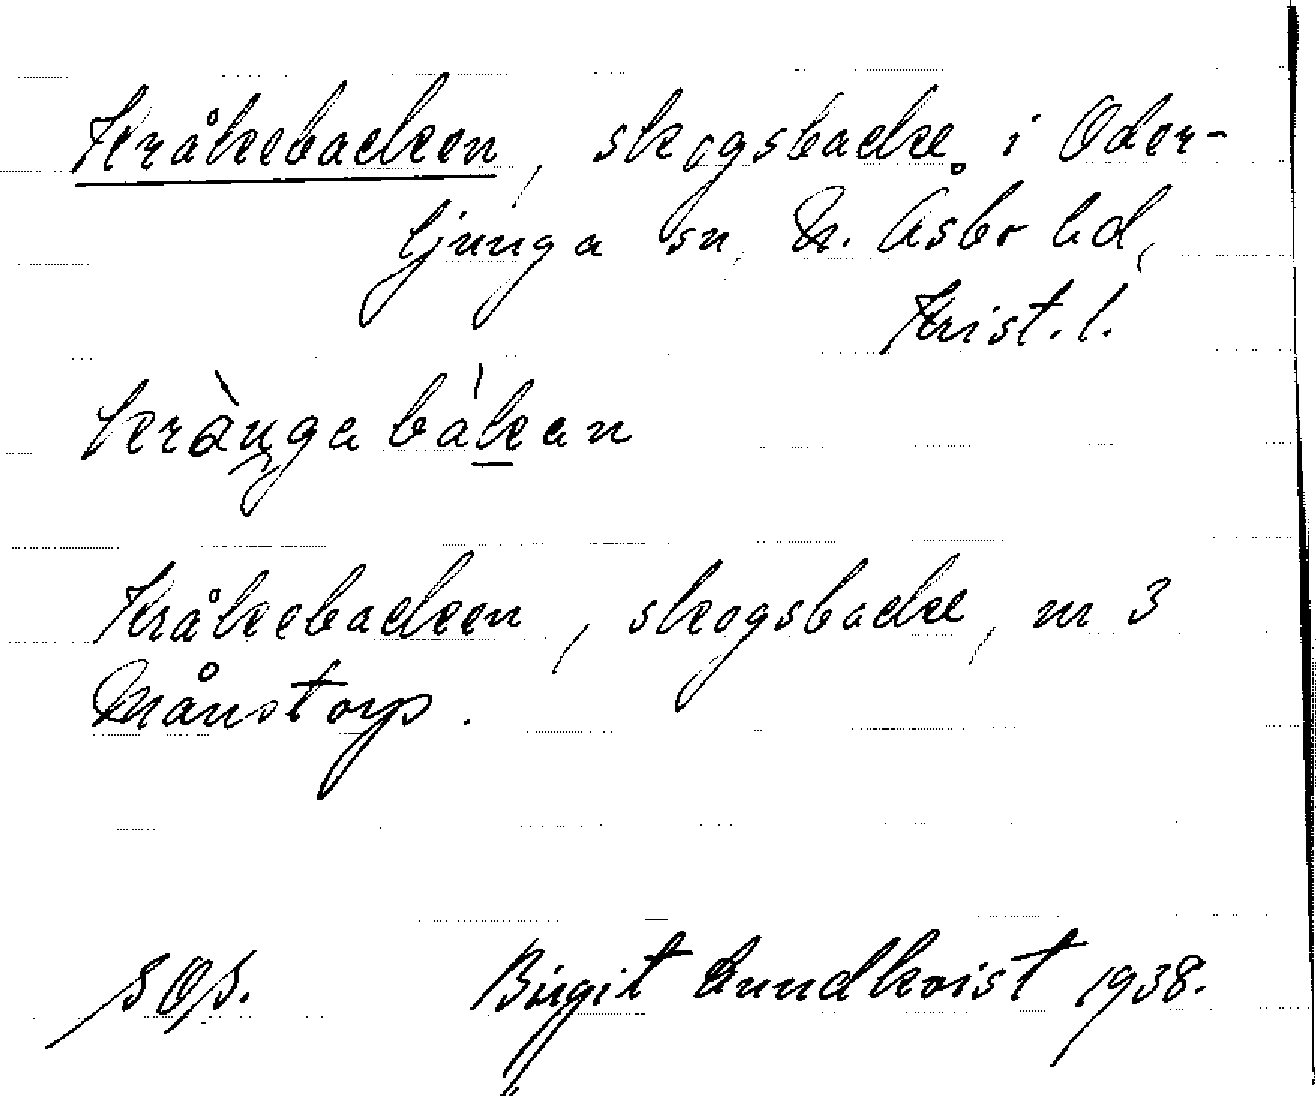 Kråkebacken, skogsbacke i Oder-
ljunga sn, N. Åsbo hd,
Krist. l.
kràngabákan
Kråkebacken, skogsbacke, m 3
Månstorp.
SOS. Birgit Lundkvist 1938.